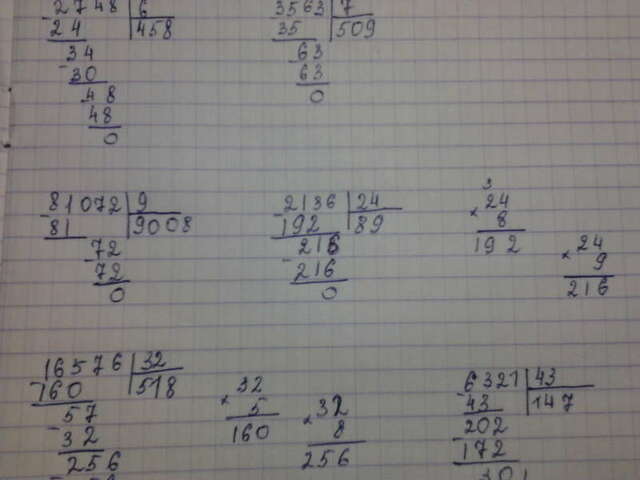 2748 6
24 458
-34
30
48
48
0
3563 7
35 509
63
63
0
-81072 9
81 9008
-72
72
0
-2136 24
192 89
-216
216
0
3
×24
8
192
×24
9
216
16576 32
-160 518
-57
32
256
×32
5
160
×32
8
256
6321 43
-43 147
202
-172
301